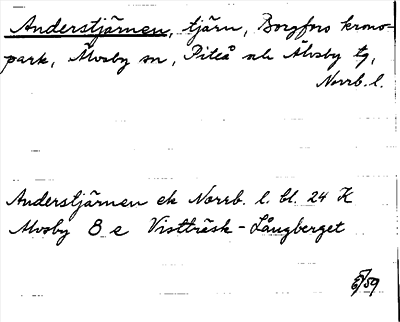 Anderstjärnen, tjärn, Borgfors krono-
park, Älvsby sn, Piteå o. Älvsby tg,
Norrb. l.
Anderstjärnen ek Norrb. l. bl. 24 K
Älvsby 8 e Vistträsk - Långberget
/59